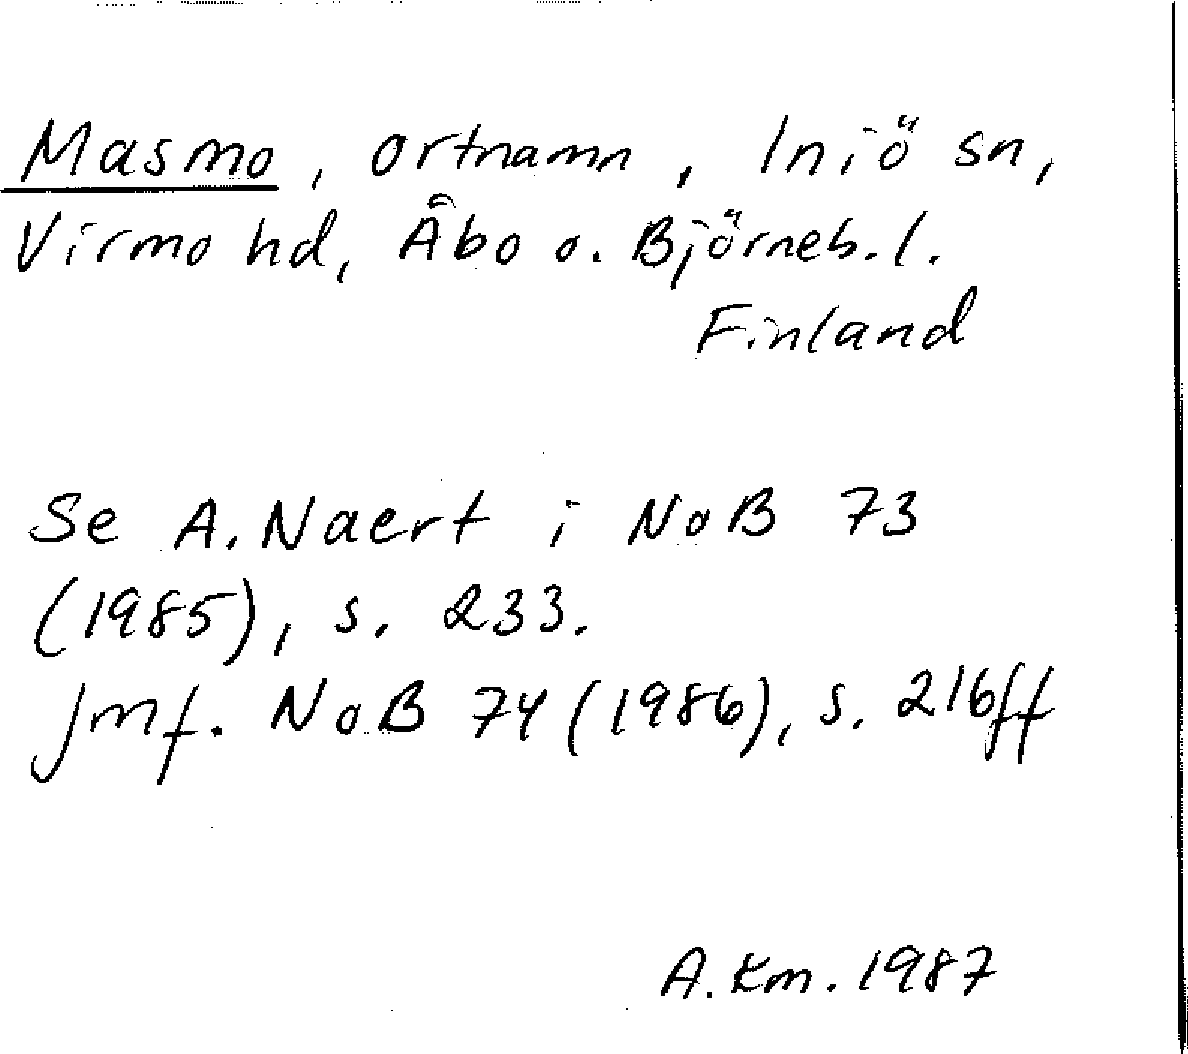 Masmo, ortnamn, Iniö sn,
Virmo hd, Åbo o. Björneb. l.
Finland
Se A. Naert i NoB 73
(1985), s. 233.
Jmf. NoB 74 (1986), s. 216ff
A. Km. 1987